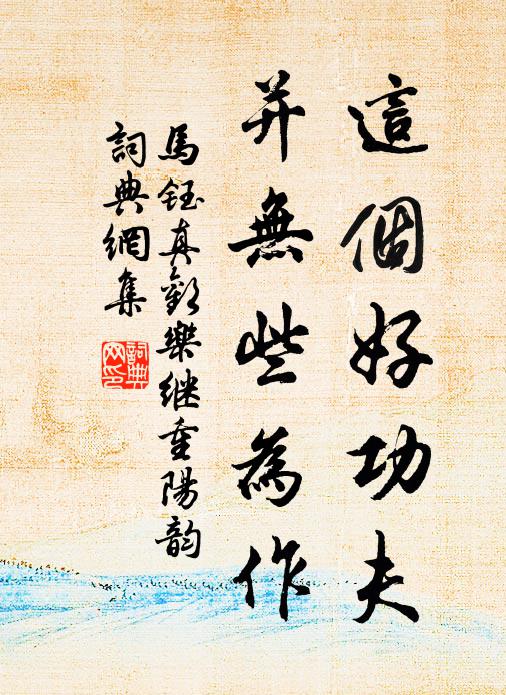 這個好功夫
并無些為作
馬鈺真歡樂继重陽韵
詞典網集
詞典
网印